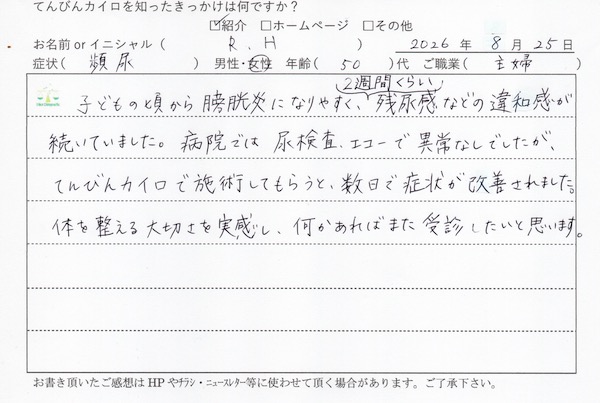 てんびんカイロを知ったきっかけは何ですか？
☑紹介 □ホームページ □その他
お名前orイニシャル（ R.H ） 2026年 8月 25日
症状（ 頻尿 ） 男性・女性 年齢（ 50 ）代 ご職業（ 主婦 ）
2週間くらい
子どもの頃から膀胱炎になりやすく、残尿感などの違和感が
続いていました。病院では 尿検査、エコーで異常なしでしたが、
てんびんカイロで施術してもらうと、数日で症状が改善されました。
体を整える大切さを実感し、何かあればまた受診したいと思います。
お書き頂いたご感想はHPやチラシ・ニュースレター等に使わせて頂く場合があります。ご了承下さい。